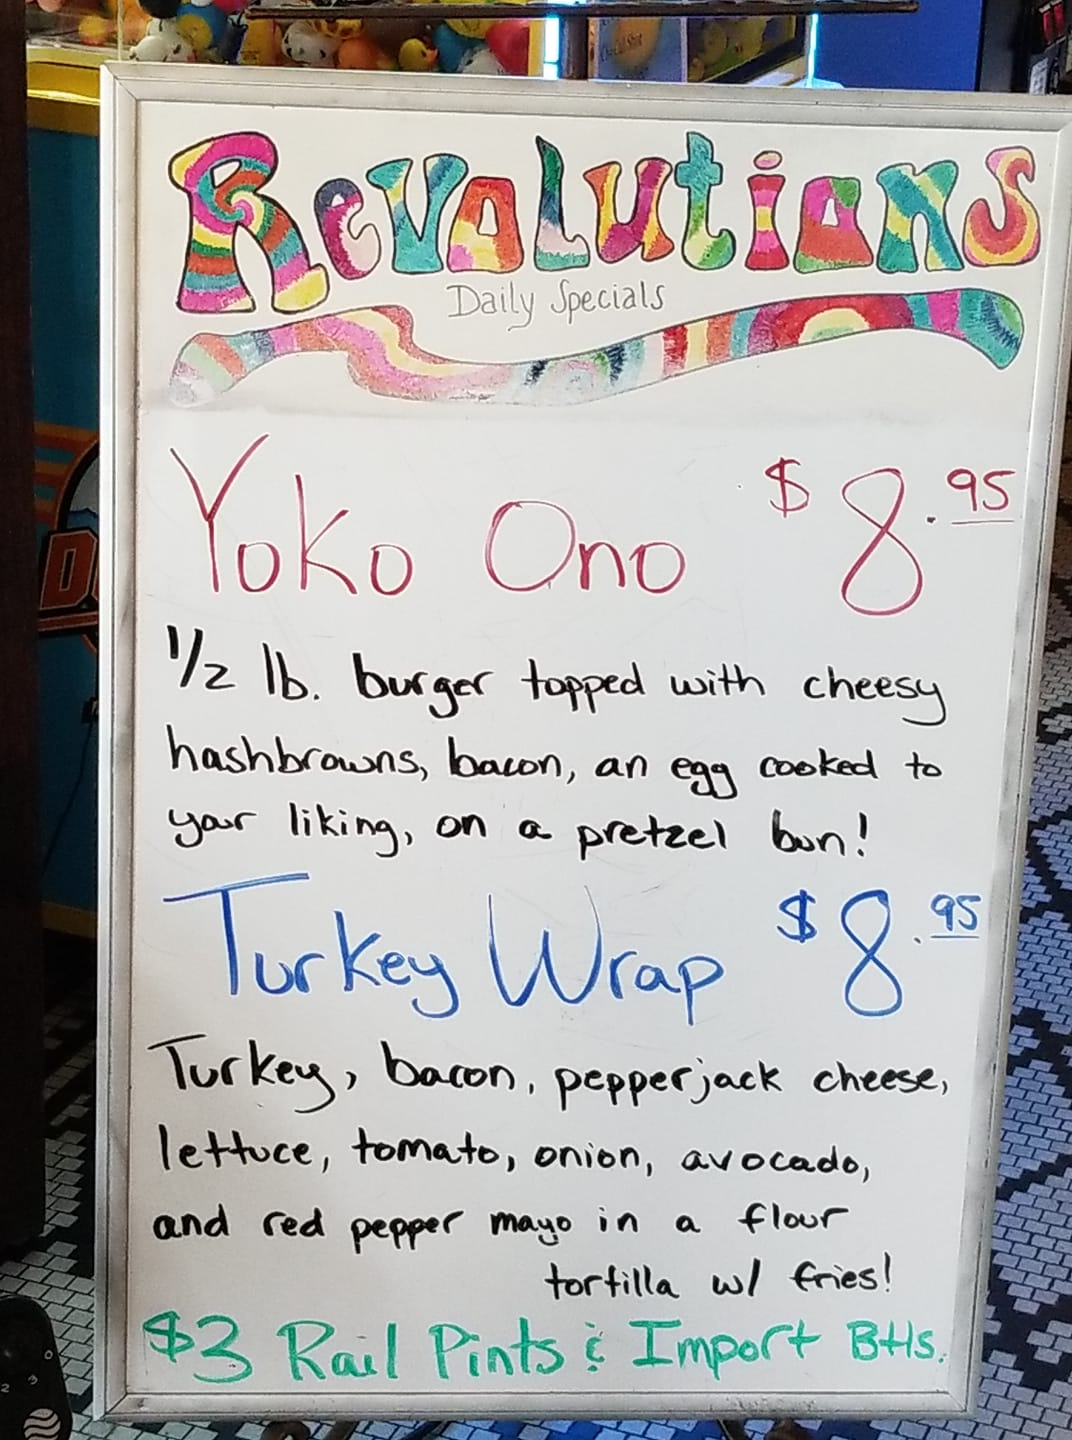 Revolutions
Daily Specials
Yoko Ono $8.95
1/2 lb. burger topped with cheesy
hashbrowns, bacon, an egg cooked to
your liking, on a pretzel bun!
Turkey Wrap $8.95
Turkey, bacon, pepperjack cheese,
lettuce, tomato, onion, avocado,
and red pepper mayo in a flour
tortilla w/ fries!
$3 Rail Pints & Import Btls.